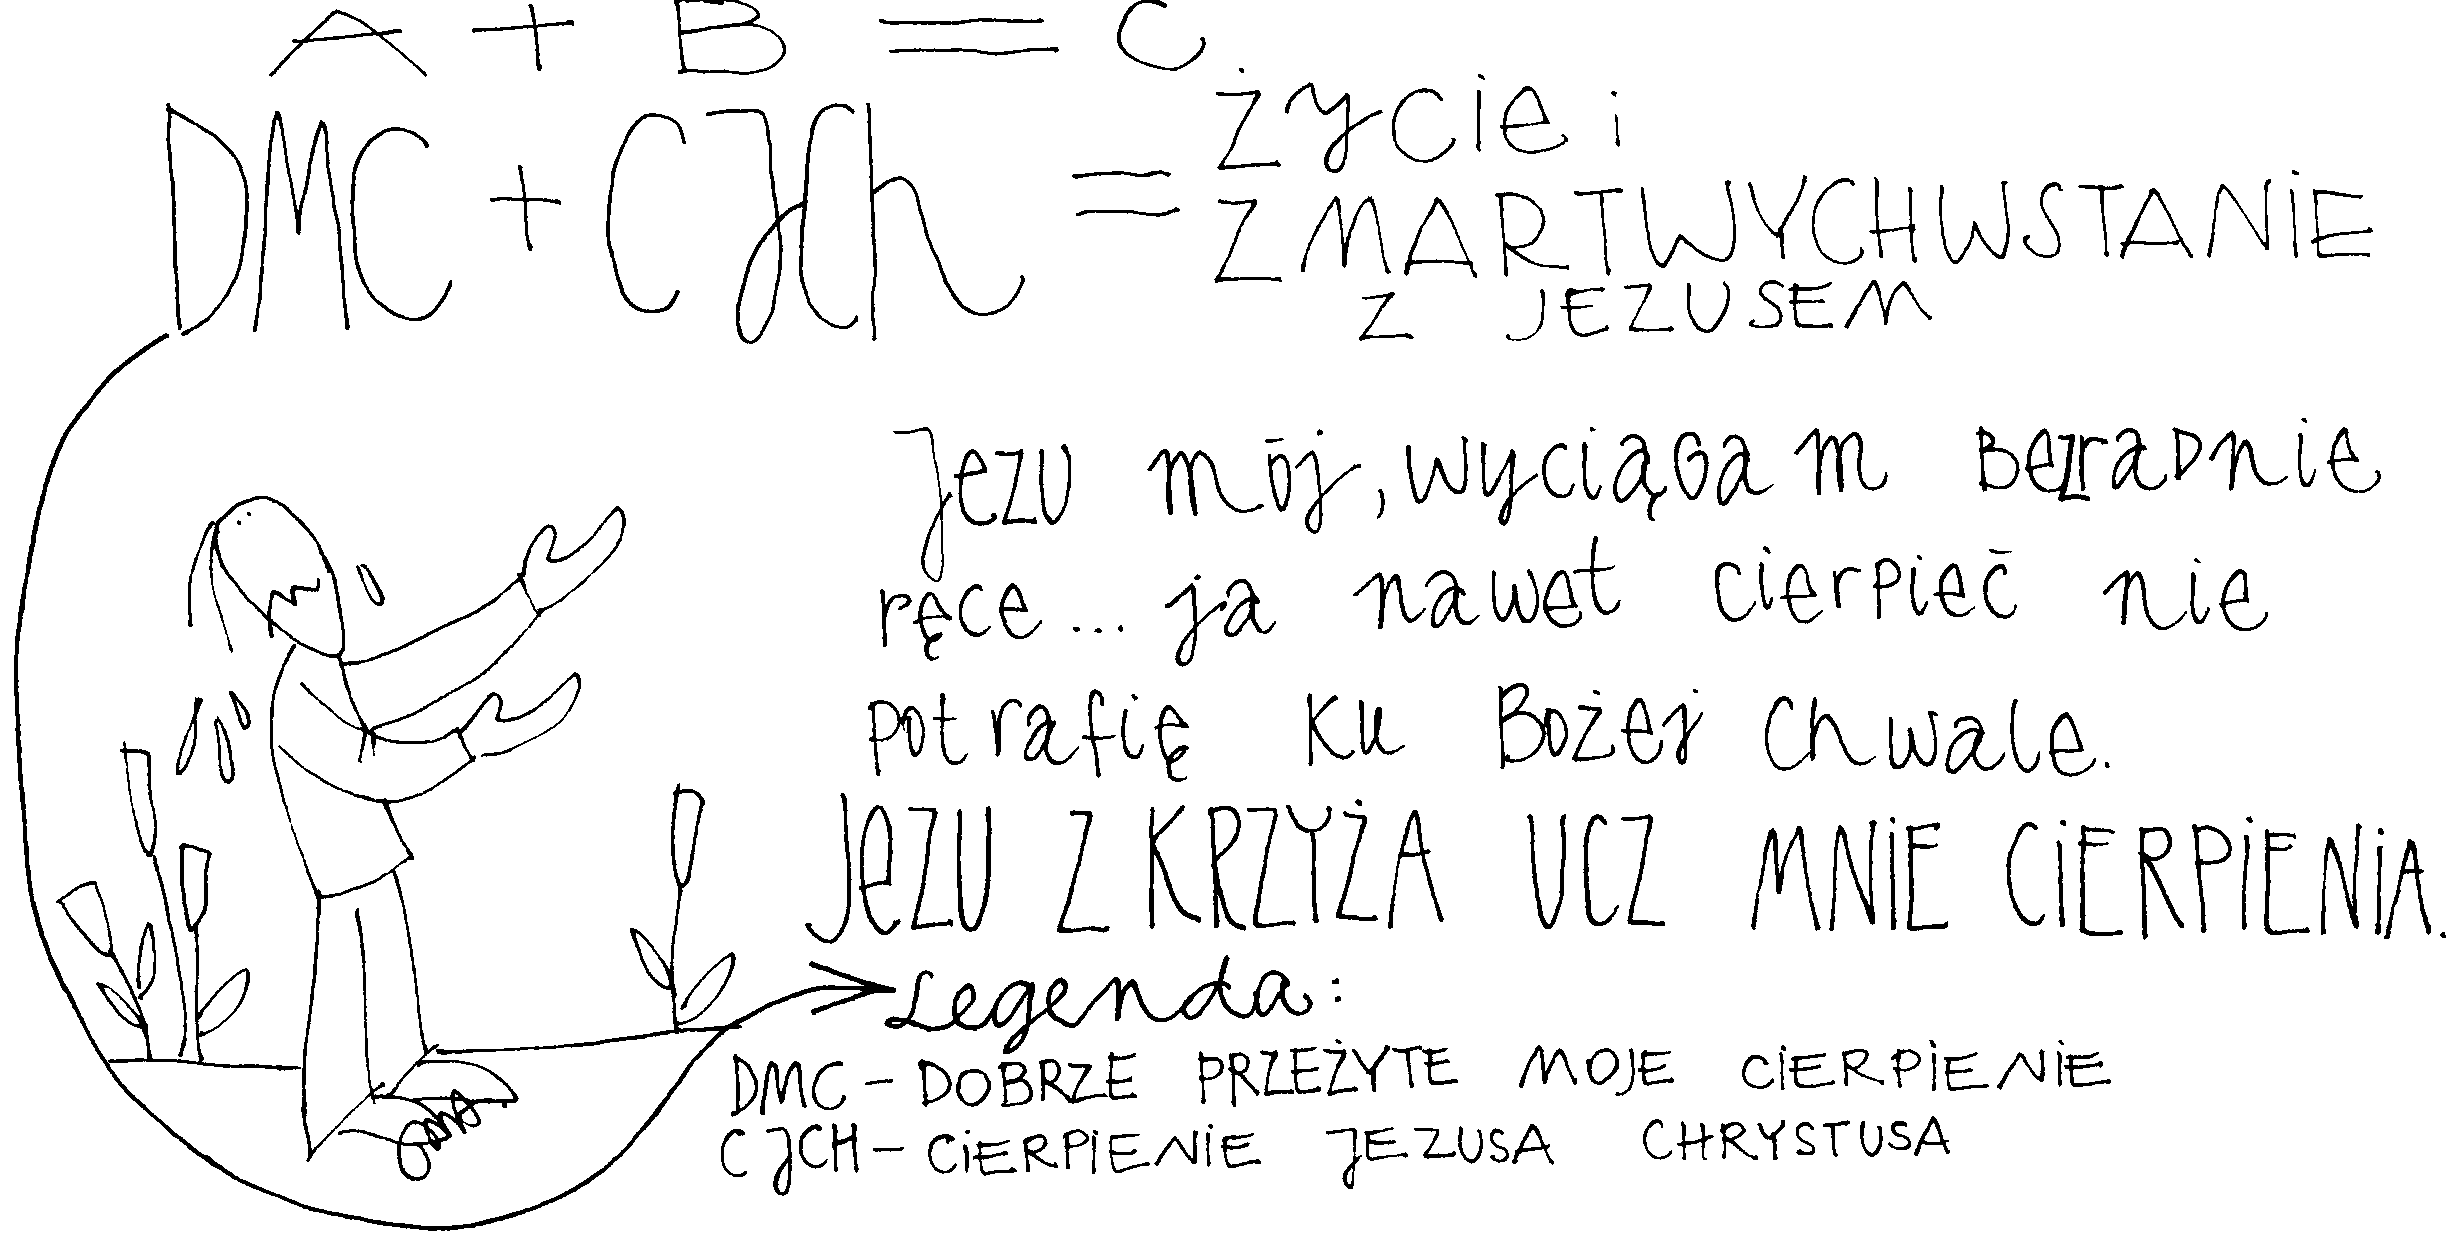 A + B = C
DMC + CJCh = życie i
ZMARTWYCHWSTANIE
Z JEZUSEM
Jezu mój, wyciągam bezradnie
ręce... ja nawet cierpieć nie
potrafię ku Bożej chwale.
JEZU Z KRZYŻA UCZ MNIE CIERPIENIA.
Legenda:
DMC – DOBRZE PRZEŻYTE MOJE CIERPIENIE
CJCH – CIERPIENIE JEZUSA CHRYSTUSA